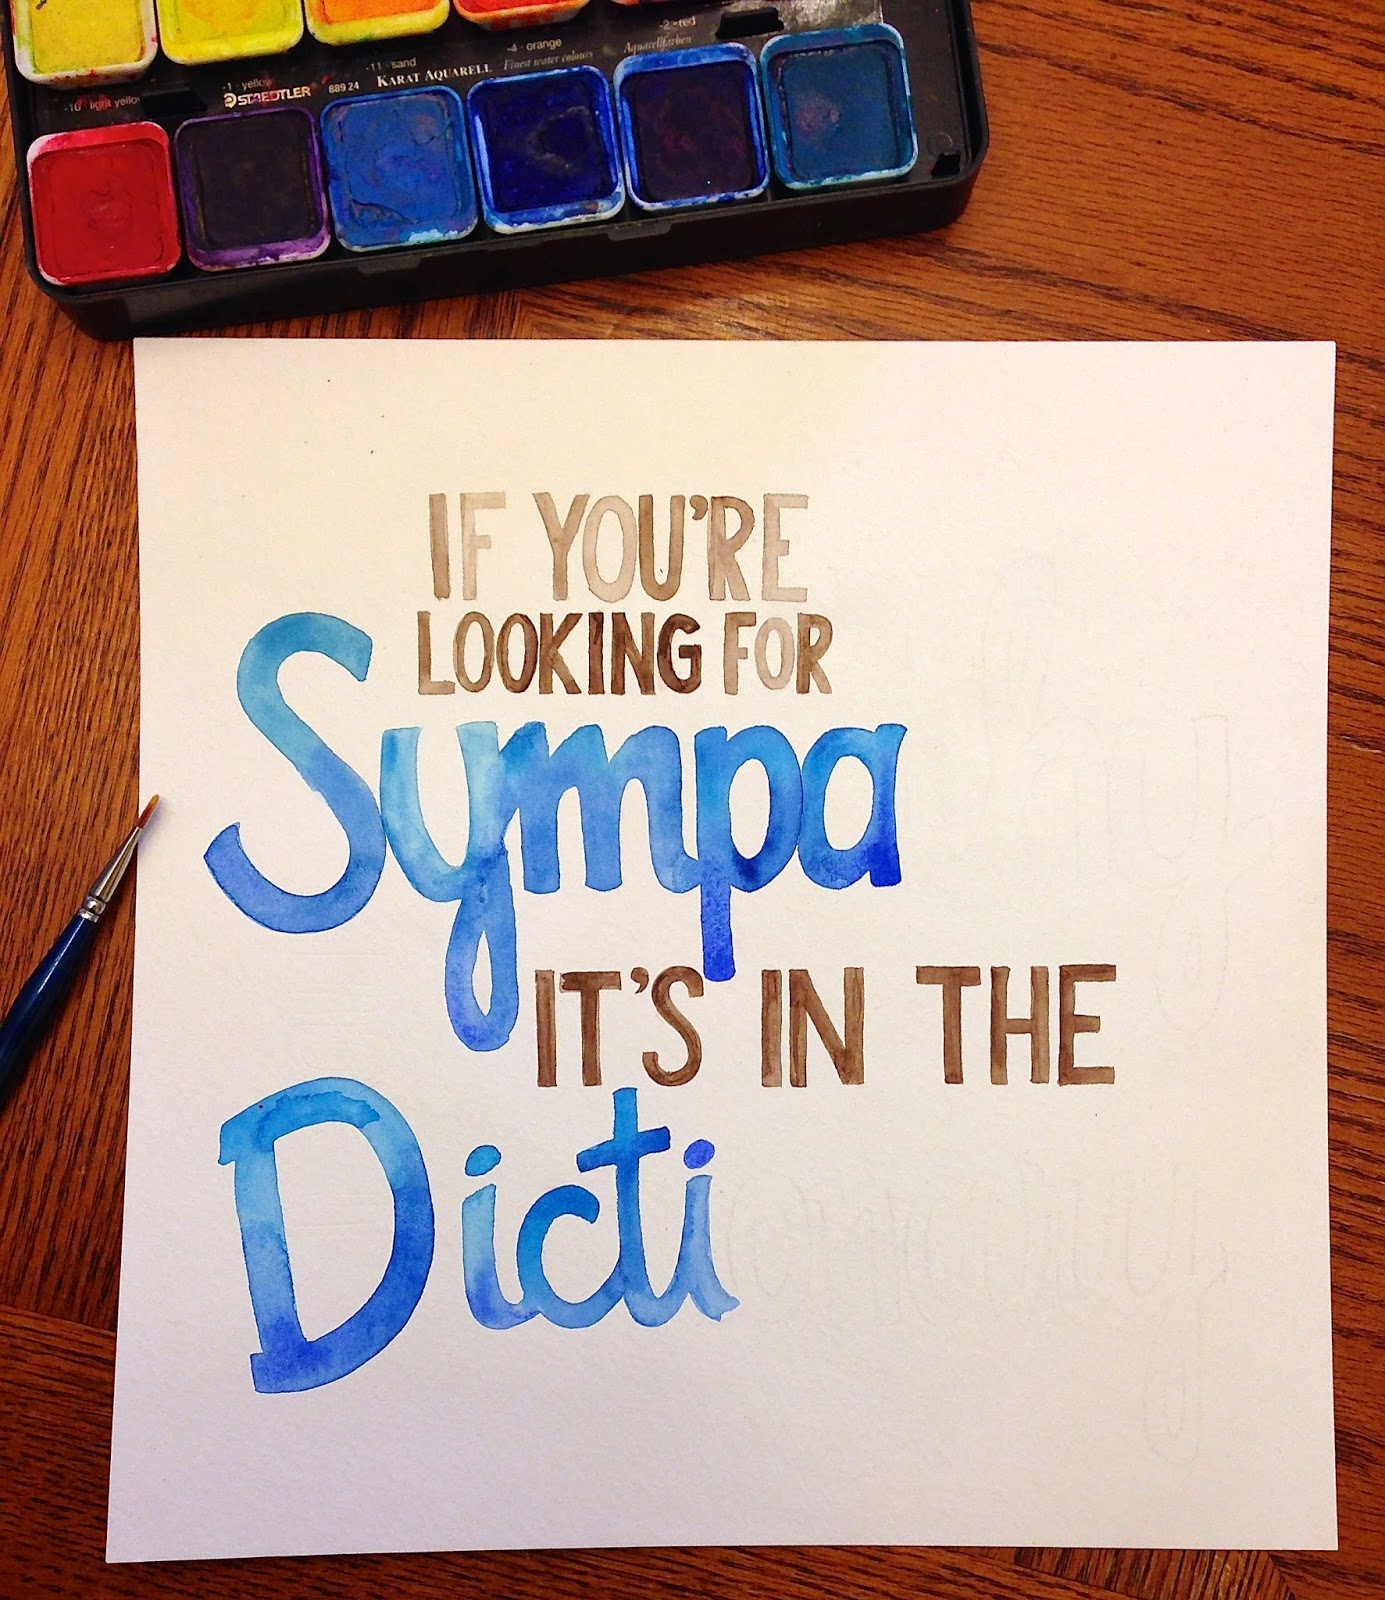 -10 · light yellow
-1 · yellow
-11 · sand
-4 · orange
-2 · red
STAEDTLER
889 24
KARAT AQUARELL
Finest water colours
Aquarellfarben
IF YOU'RE
LOOKING FOR
Sympathy
IT'S IN THE
Dictionary